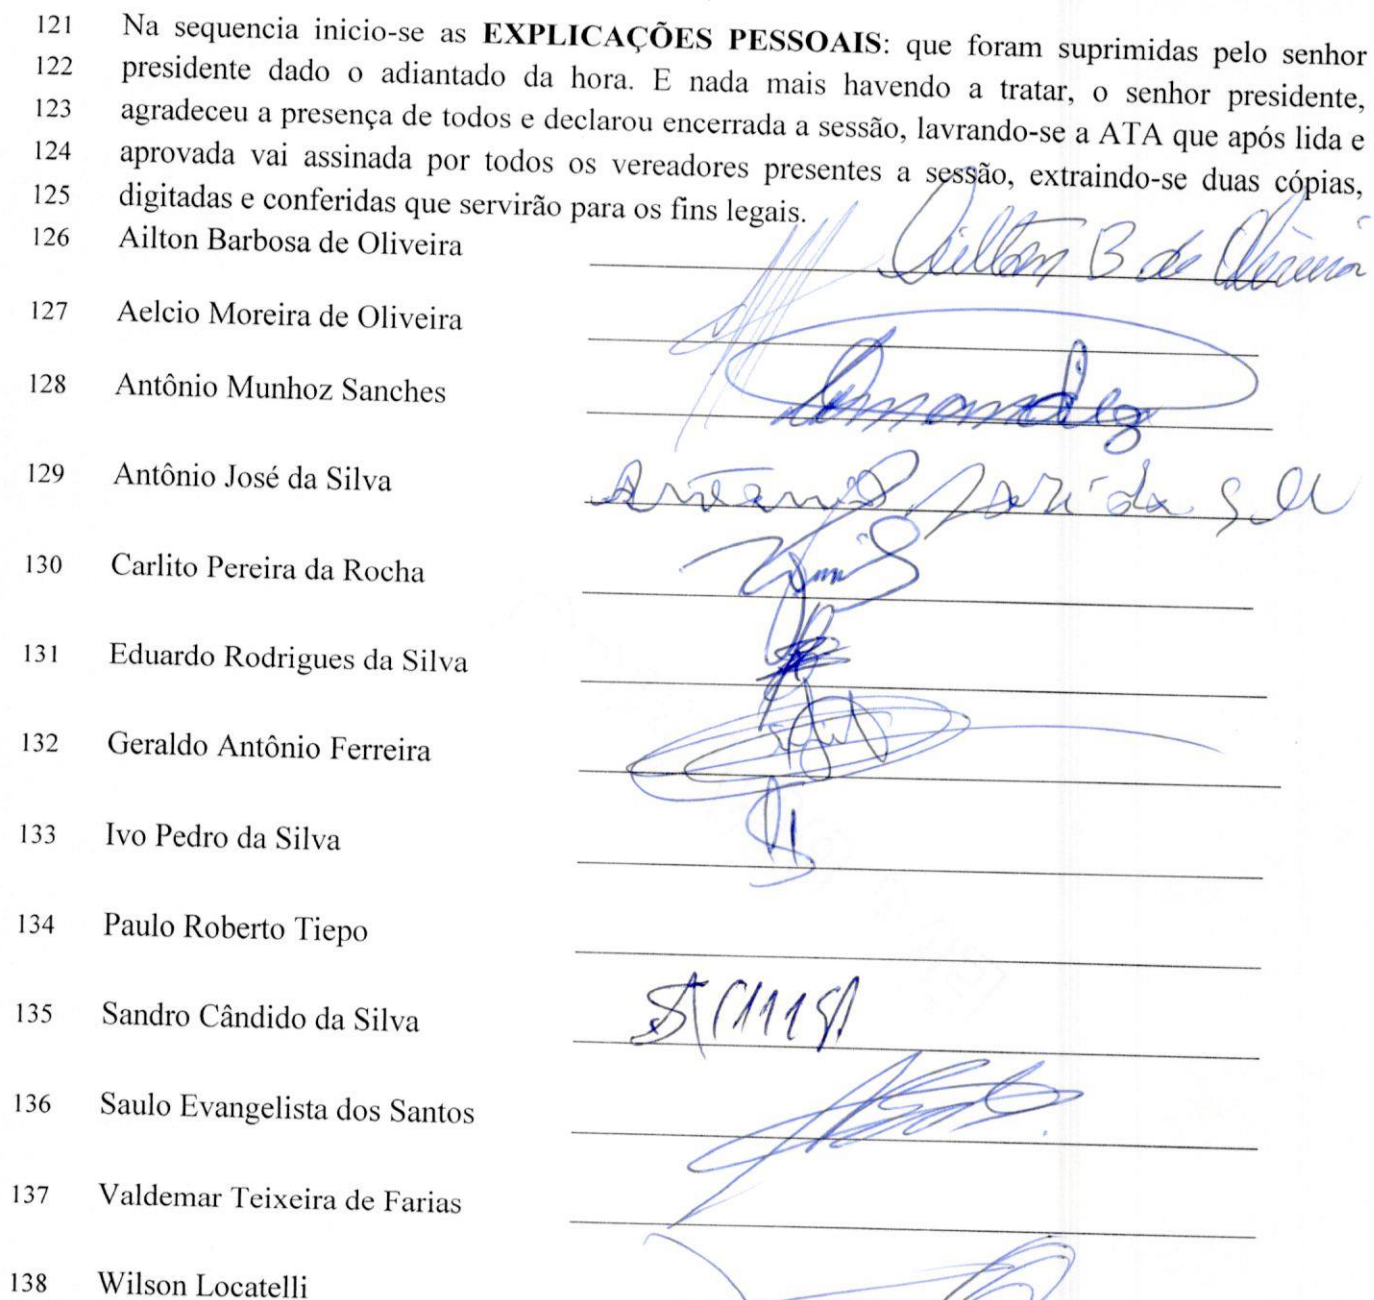 121 Na sequencia inicio-se as EXPLICAÇÕES PESSOAIS: que foram suprimidas pelo senhor
122 presidente dado o adiantado da hora. E nada mais havendo a tratar, o senhor presidente,
123 agradeceu a presença de todos e declarou encerrada a sessão, lavrando-se a ATA que após lida e
124 aprovada vai assinada por todos os vereadores presentes a sessão, extraindo-se duas cópias,
125 digitadas e conferidas que servirão para os fins legais.
126 Ailton Barbosa de Oliveira Ailton B de Oliveira
127 Aelcio Moreira de Oliveira
128 Antônio Munhoz Sanches
129 Antônio José da Silva
130 Carlito Pereira da Rocha
131 Eduardo Rodrigues da Silva
132 Geraldo Antônio Ferreira
133 Ivo Pedro da Silva
134 Paulo Roberto Tiepo
135 Sandro Cândido da Silva
136 Saulo Evangelista dos Santos
137 Valdemar Teixeira de Farias
138 Wilson Locatelli